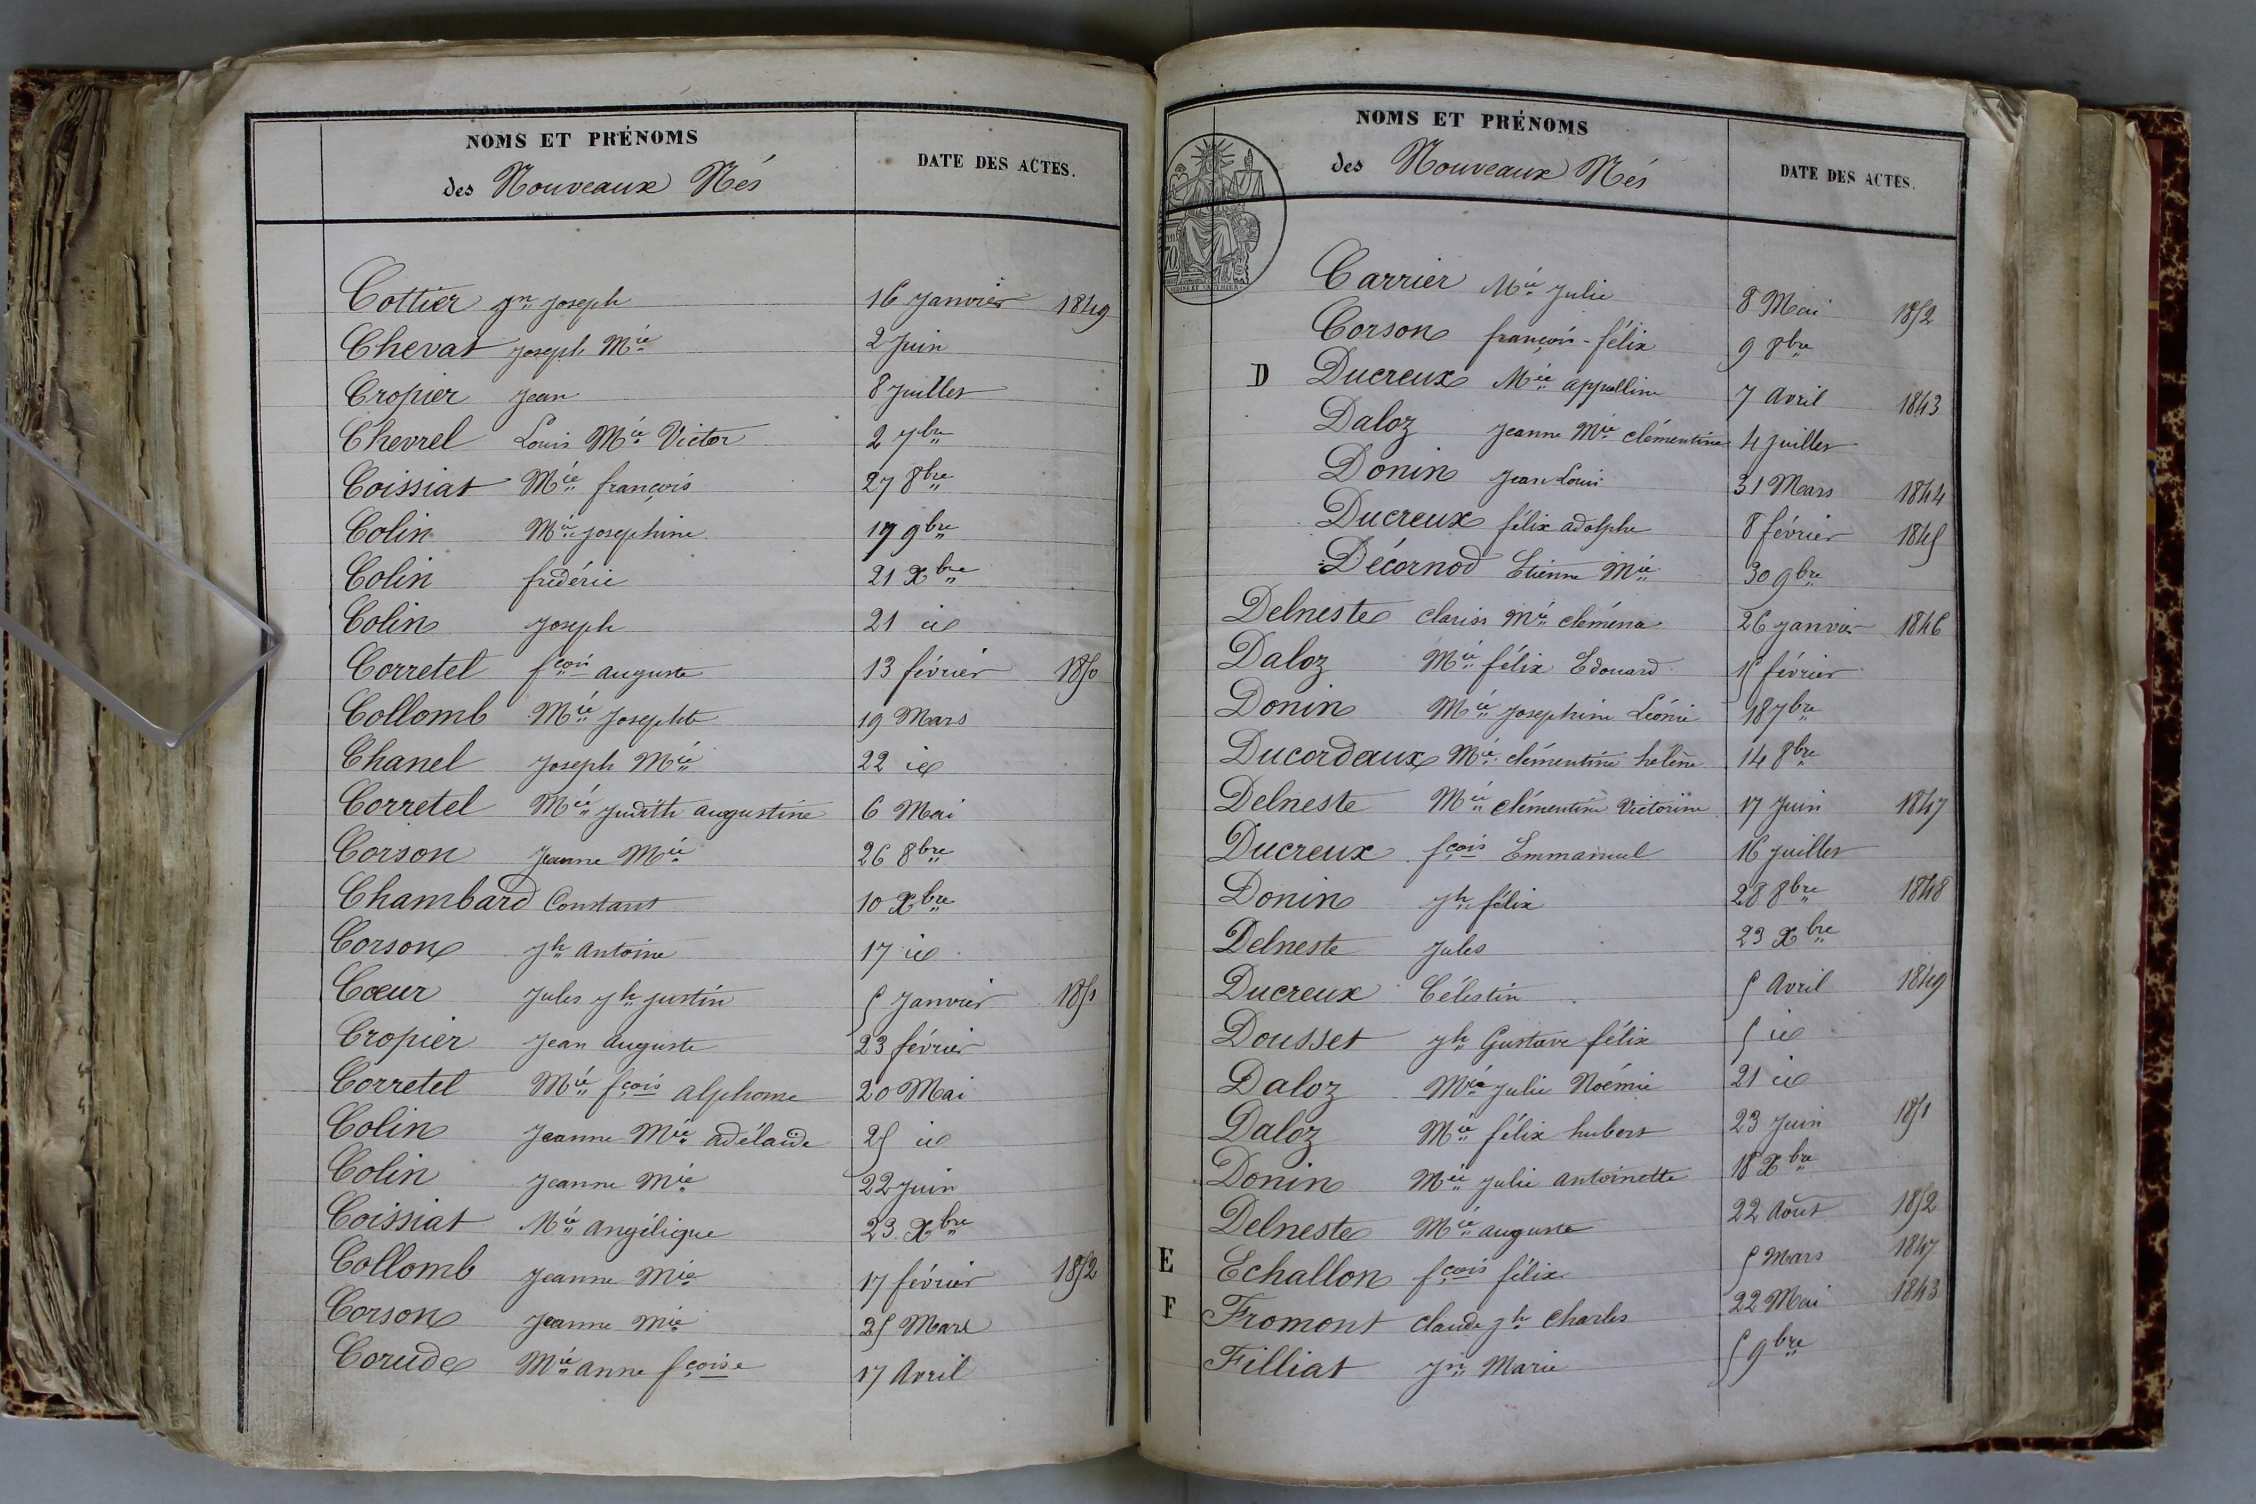 NOMS ET PRÉNOMS
des Nouveaux Nés
DATE DES ACTES.
Cottier Jn Joseph 16 Janvier 1849
Chevat Joseph Mie 2 Juin
Cropier Jean 8 Juillet
Chevrel Louis Mie Victor 2 7bre
Coissiat Mie françois 27 8bre
Colin Mie Josephine 17 9bre
Colin frédéric 21 Xbre
Colin Joseph 21 id
Corretel fçois auguste 13 février 1850
Collomb Mie Josephte 19 Mars
Chanel Joseph Mie 22 id
Corretel Mie Judith augustine 6 Mai
Corson Jeanne Mie 26 8bre
Chambard Constant 10 Xbre
Corson Jh antoine 17 id
Cœur Jules Jh Justin 5 Janvier 1851
Cropier Jean auguste 23 février
Corretel Mie fçois alphonse 20 Mai
Colin Jeanne Mie adélaide 25 id
Colin Jeanne Mie 22 Juin
Coissiat Mie angélique 23 Xbre
Collomb Jeanne Mie 17 février 1852
Corson Jeanne Mie 25 Mars
Corude Mie anne fçoise 17 Avril
NOMS ET PRÉNOMS
des Nouveaux Nés
DATE DES ACTES.
Carrier Mie Julie 8 Mai 1852
Corson françois-félix 9 8bre
D Ducreux Mie appolline 7 Avril 1843
Daloz Jeanne Mie clémentine 4 Juillet
Donin Jean Louis 31 Mars 1844
Ducreux félix adolphe 8 février 1845
Décornod Etienne Mie 30 9bre
Delneste clariss Mie cléména 26 Janvier 1846
Daloz Mie félix Edouard 15 février
Donin Mie Josephine Léonie 18 7bre
Ducordeaux Mie clémentine helène 14 8bre
Delneste Mie clémentine Victorine 17 Juin 1847
Ducreux fçois Emmanuel 16 Juillet
Donin Jh félix 28 8bre 1848
Delneste Jules 23 Xbre
Ducreux Célestin 5 Avril 1849
Dousset Jh Gustave félix 5 id
Daloz Mie Julie Noémie 21 id
Daloz Mie félix hubert 23 Juin 1851
Donin Mie Julie antoinette 18 Xbre
Delneste Mie auguste 22 Août 1852
E Echallon fçois félix 5 Mars 1847
F Fromont claude Jh Charles 22 Mai 1843
Filliat Jn Marie 5 9bre